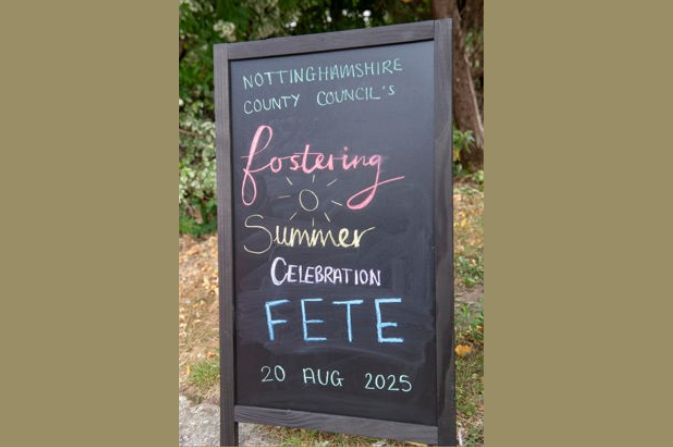 NOTTINGHAMSHIRE
COUNTY COUNCIL'S
fostering
Summer
CELEBRATION
FETE
20 AUG 2025